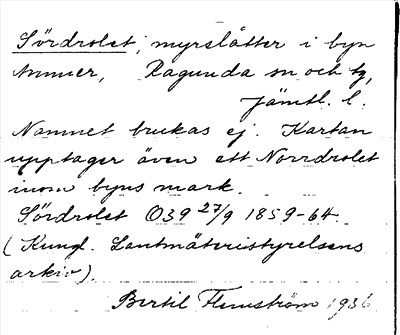 Sördrolet, myrslåtter i byn
Ammer, Ragunda sn och tg,
Jämtl. l.
Namnet brukas ej. Kartan
upptager även ett Norrdrolet
inom byns mark.
Sördrolet O39 27/9 1859-64
(Kungl. Lantmäteristyrelsens
arkiv).
Bertil Flemström 1936